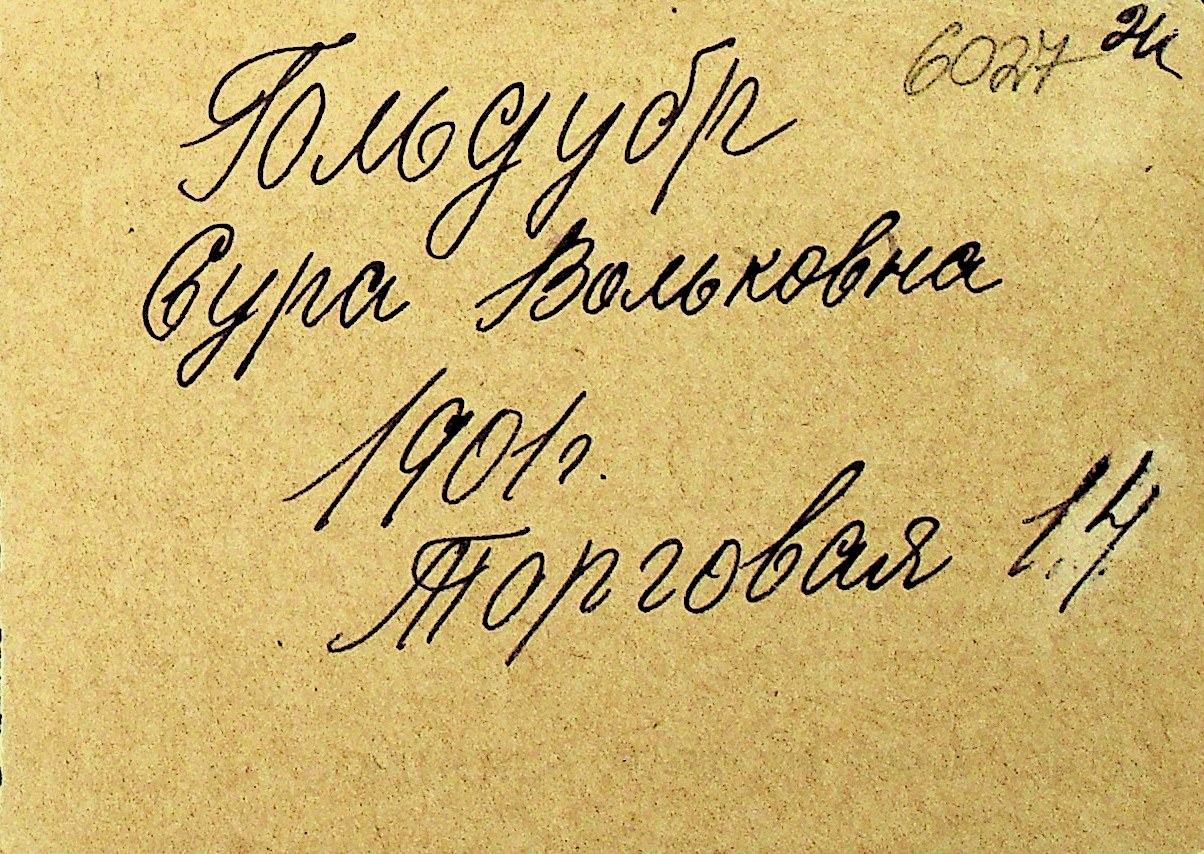 6027
Гольдубр
Сура Вольковна
1901г.
Торговая 14